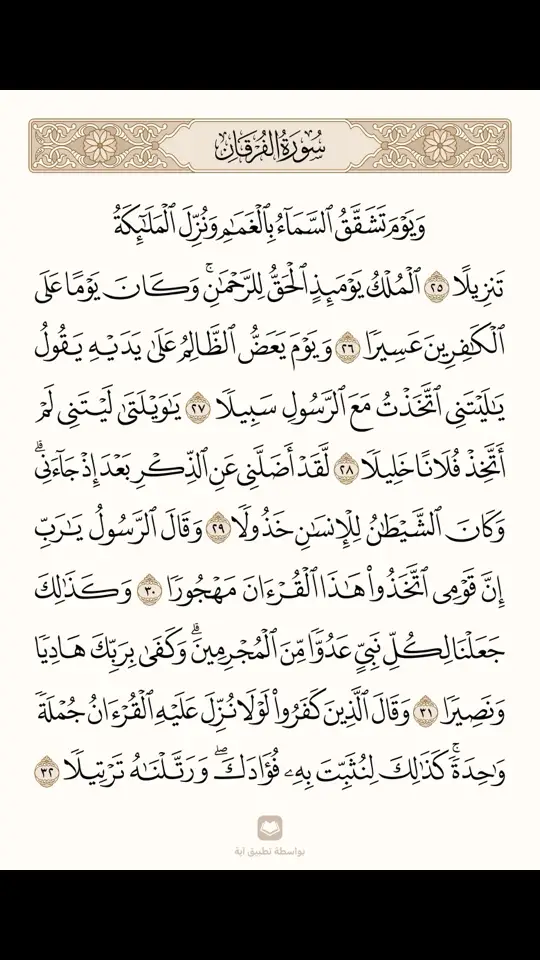 سُورَةُ الفُرْقَانِ
وَيَوْمَ تَشَقَّقُ ٱلسَّمَآءُ بِٱلْغَمَٰمِ وَنُزِّلَ ٱلْمَلَٰٓئِكَةُ
تَنزِيلًا ٢٥ ٱلْمُلْكُ يَوْمَئِذٍ ٱلْحَقُّ لِلرَّحْمَٰنِۚ وَكَانَ يَوْمًا عَلَى
ٱلْكَٰفِرِينَ عَسِيرًا ٢٦ وَيَوْمَ يَعَضُّ ٱلظَّالِمُ عَلَىٰ يَدَيْهِ يَقُولُ
يَٰلَيْتَنِى ٱتَّخَذْتُ مَعَ ٱلرَّسُولِ سَبِيلًا ٢٧ يَٰوَيْلَتَىٰ لَيْتَنِى لَمْ
أَتَّخِذْ فُلَانًا خَلِيلًا ٢٨ لَّقَدْ أَضَلَّنِى عَنِ ٱلذِّكْرِ بَعْدَ إِذْ جَآءَنِىۗ
وَكَانَ ٱلشَّيْطَٰنُ لِلْإِنسَٰنِ خَذُولًا ٢٩ وَقَالَ ٱلرَّسُولُ يَٰرَبِّ
إِنَّ قَوْمِى ٱتَّخَذُوا۟ هَٰذَا ٱلْقُرْءَانَ مَهْجُورًا ٣٠ وَكَذَٰلِكَ
جَعَلْنَا لِكُلِّ نَبِىٍّ عَدُوًّا مِّنَ ٱلْمُجْرِمِينَۗ وَكَفَىٰ بِرَبِّكَ هَادِيًا
وَنَصِيرًا ٣١ وَقَالَ ٱلَّذِينَ كَفَرُوا۟ لَوْلَا نُزِّلَ عَلَيْهِ ٱلْقُرْءَانُ جُمْلَةً
وَٰحِدَةًۚ كَذَٰلِكَ لِنُثَبِّتَ بِهِۦ فُؤَادَكَۖ وَرَتَّلْنَٰهُ تَرْتِيلًا ٣٢
بواسطة تطبيق آية